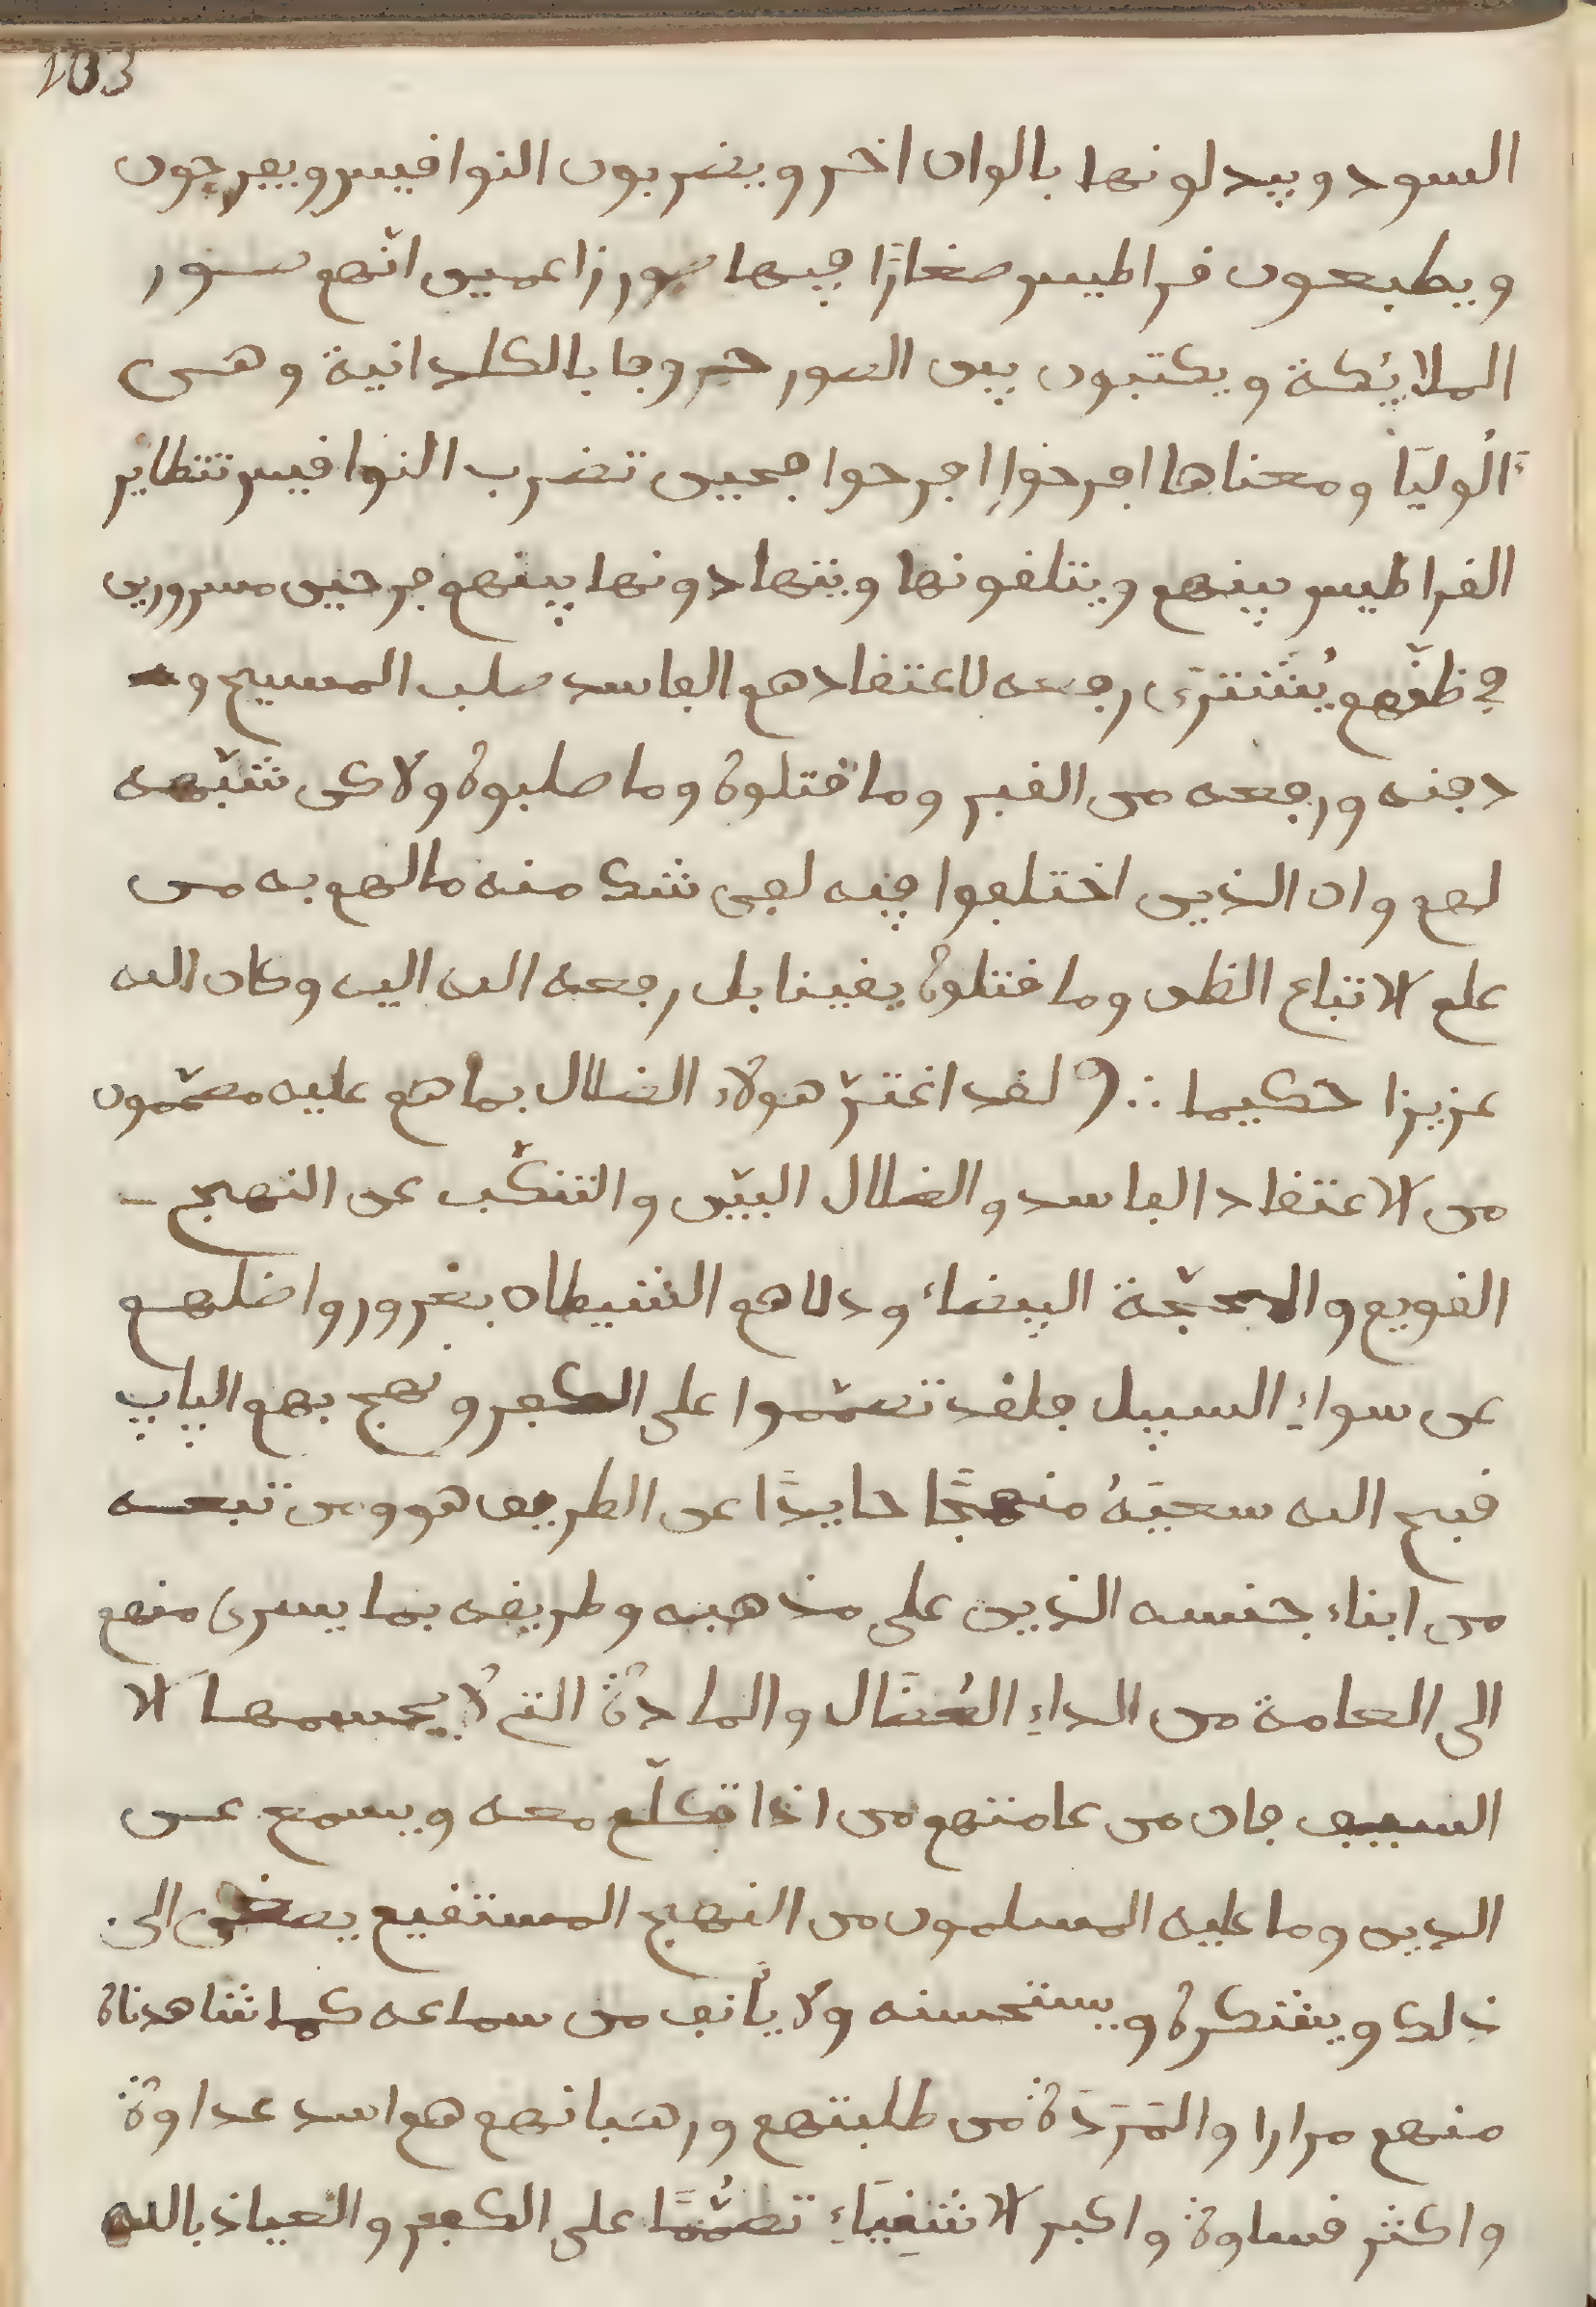 103
السود ويبدلونها بالوان اخر ويضربون النواقيس ويفرحون
ويطبعون قراطيس صغارًا فيها صور زاعمين انّهم صور
الملائكة ويكتبون بين الصور حروفا بالكلدانية وهى
اَلُوليَا ومعناها افرحوا افرحوا فحين تضرب النواقيس تتطاير
القراطيس بينهم ويتلقونها ويتهادونها بينهم فرحين مسرورين
في ظنّهم يُشترَى رجعه لاعتقادهم الفاسد صلب المسيح و
دفنه ورجعه من القبر وما قتلوه وما صلبوه ولاكن شبّهه
لهم وان الذين اختلفوا فيه لفى شك منه مالهم به من
علم الاتباع الظن وما قتلوه يقينا بل رجعه الله اليه وكان الله
عزيزا حكيما ∴ لقد اغترّ هولاء الضلال بما هم عليه مصمّمون
من الاعتقاد الفاسد والضلال البيّن والتنكّب عن النهج
القويم والمحجّة البيضاء ودلاهم الشيطان بغرور واضلهم
عن سواءِ السبيل فلقد تصمّموا على الكفر ونهج بهم الباب
قبح الله سعيَهُ منهجًا حايدًا عن الطريق هو ومن تبعه
من ابناء جنسه الذين على مذهبه وطريقه بما يسرى منهم
الى العامة من الداءِ العُضَال والمادة التي لا يحسمها الا
السيف فان من عامتهم من اذا تكلّم معه ويسمع عن
الدين وما عليه المسلمون من النهج المستقيم يصغى الى
ذلك ويشكره ويستحسنه ولا يأنف من سماعه كما شاهدناه
منهم مرارا والمَرَدَة من طلبتهم ورهبانهم هم اسد عداوة
واكثر قساوة واكبر الاشقِيَاءِ تصمُّمًا على الكفر والعياذ بالله